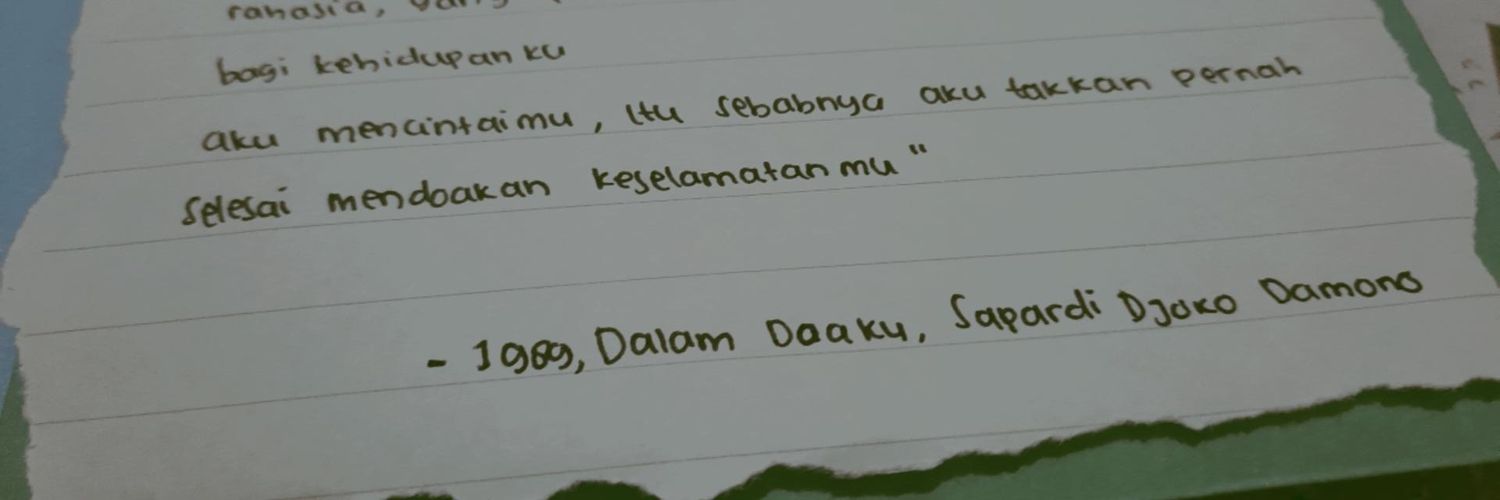 rahasia, yang
bagi kehidupanku
aku mencintaimu, Itu sebabnya aku takkan pernah
selesai mendoakan keselamatanmu"
- 1989, Dalam Doaku, Sapardi Djoko Damono